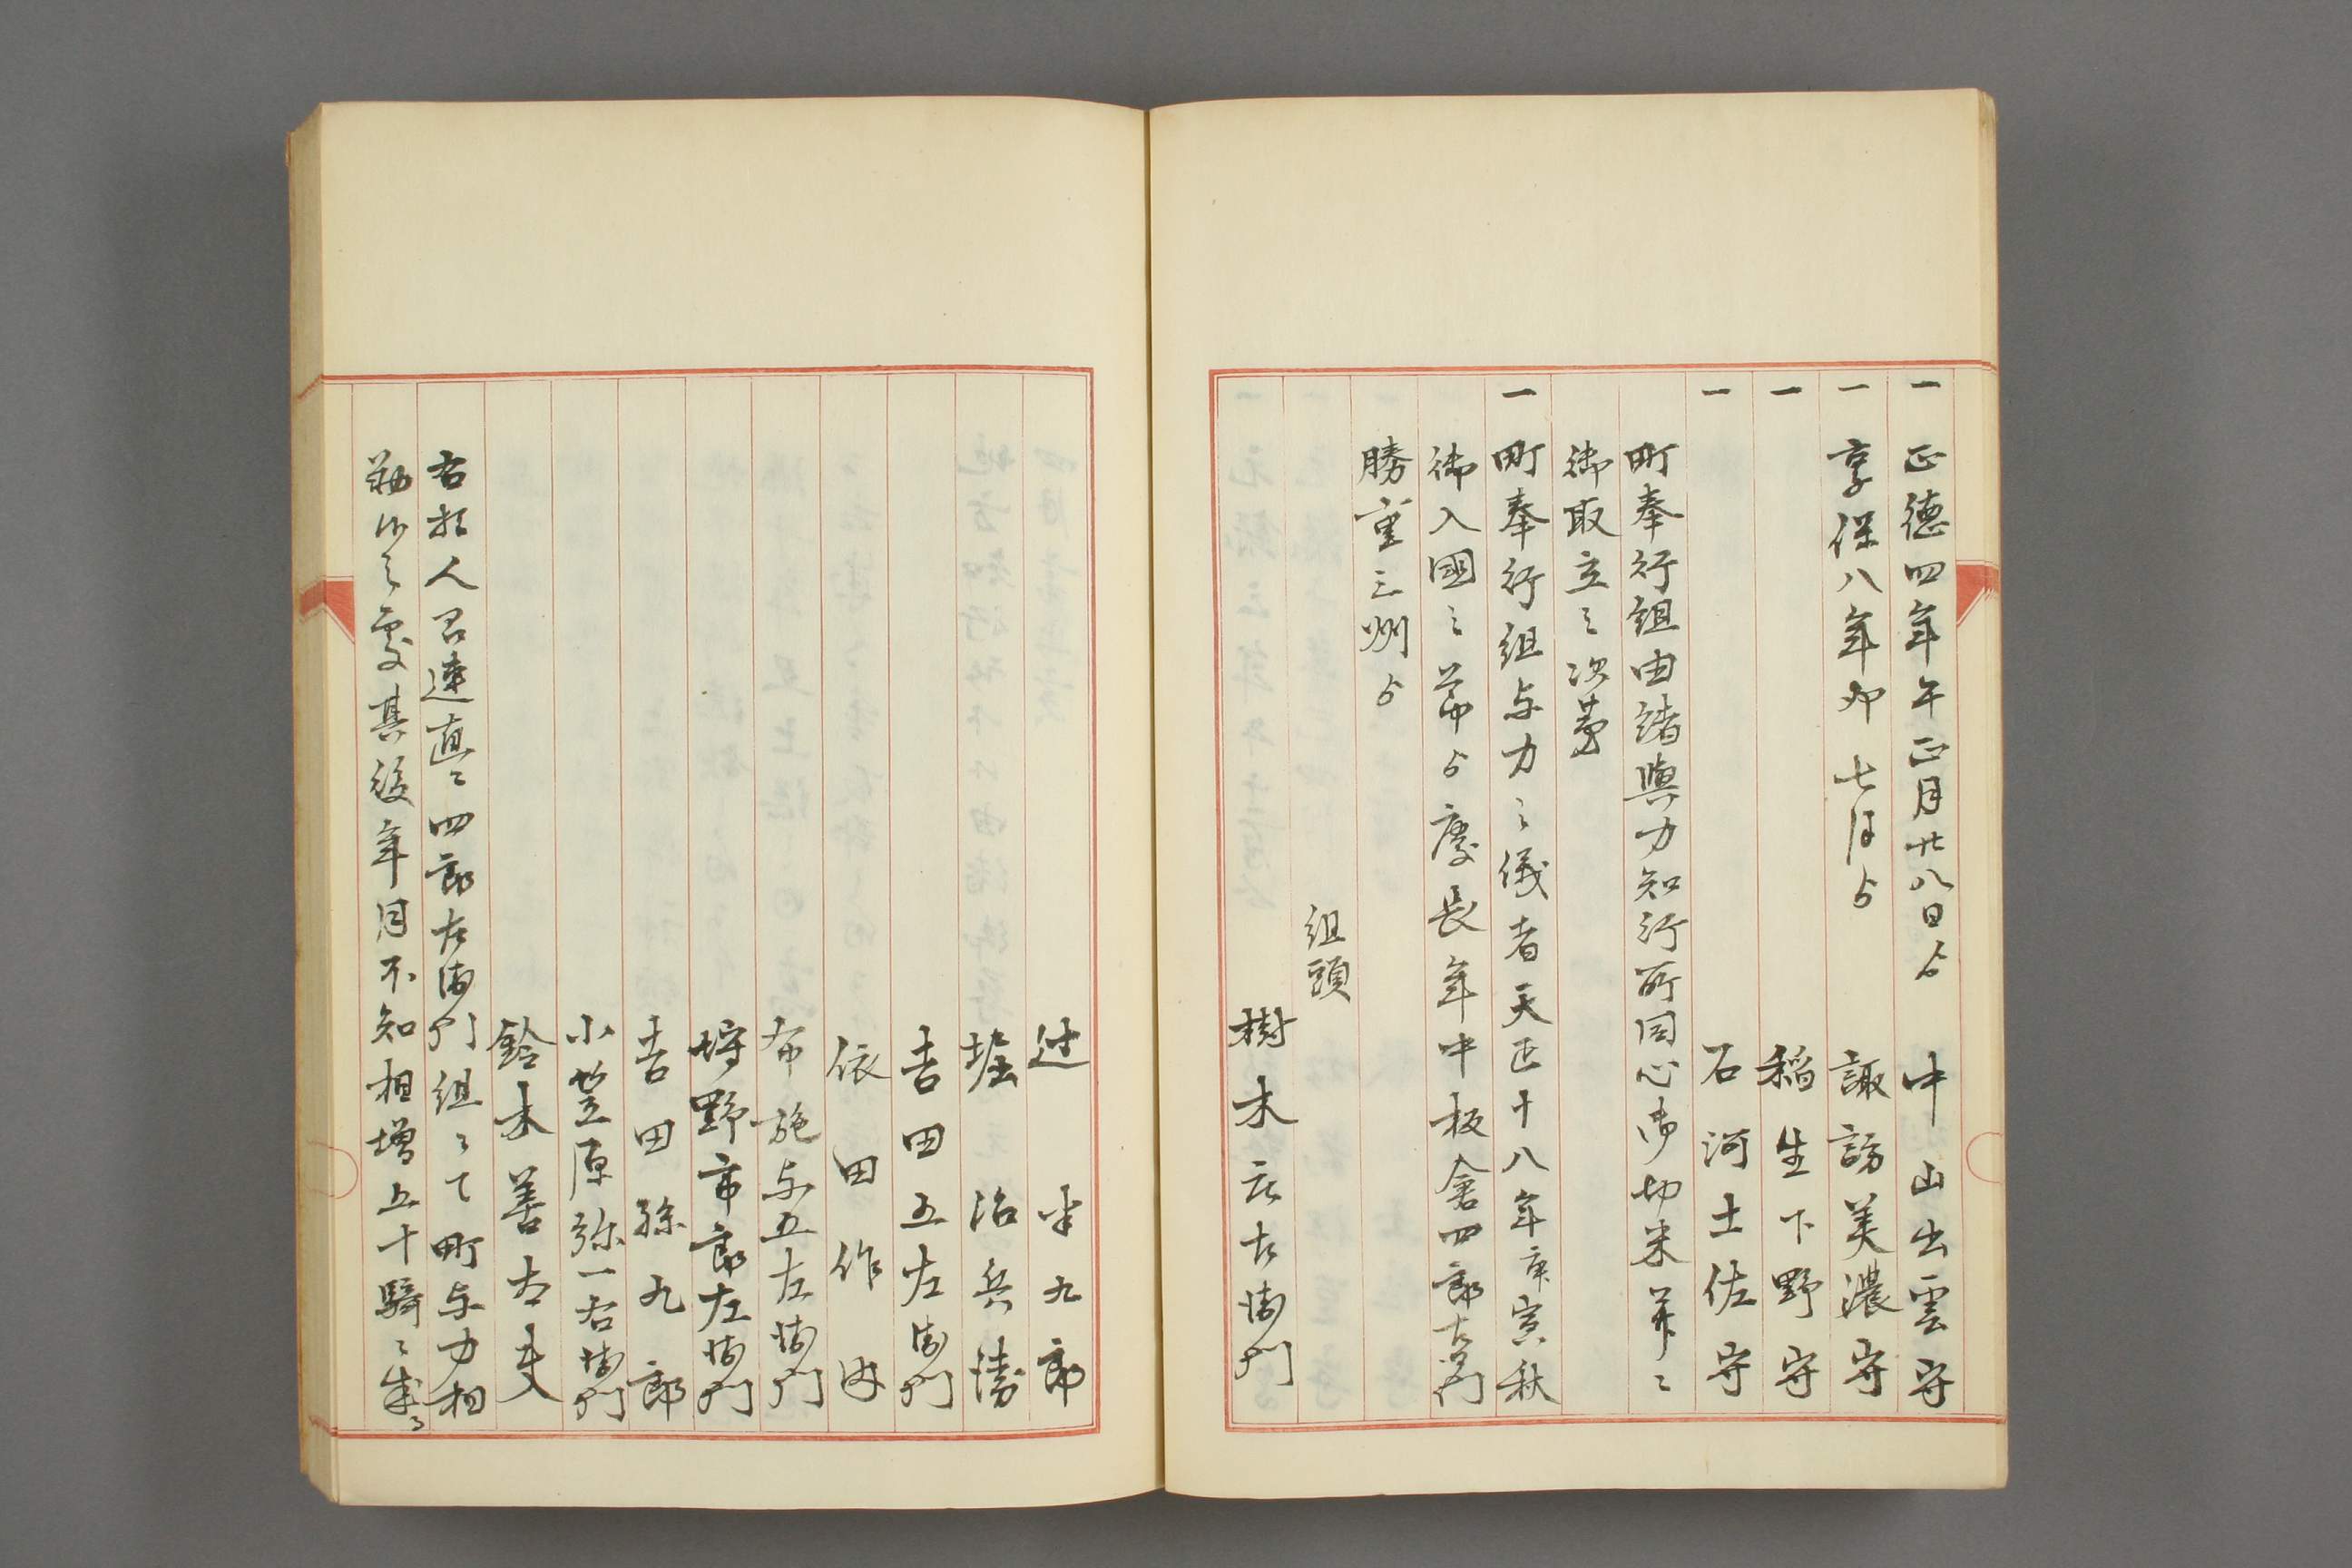 一 正徳四年午正月廿八日ゟ 中山出雲守
一 享保八年卯七月ゟ 諏訪美濃守
一 稲生下野守
一 石河土佐守
町奉行組由緒與力知行所同心御切米并ニ
御取立之次第
一 町奉行組与力之儀者天正十八年庚寅秋
御入國之節ゟ慶長年中板倉四郎右衛門
勝重三州ゟ
組頭
樹木庄右衛門
辻半九郎
堀治兵衛
吉田五左衛門
依田作内
布施与五左衛門
狩野市郎左衛門
吉田孫九郎
小笠原弥一右衛門
鈴木善太夫
右拾人召連直ニ四郎右衛門組ニて町与力相
勤候之處其後年月不知相増五十騎ニ成ル